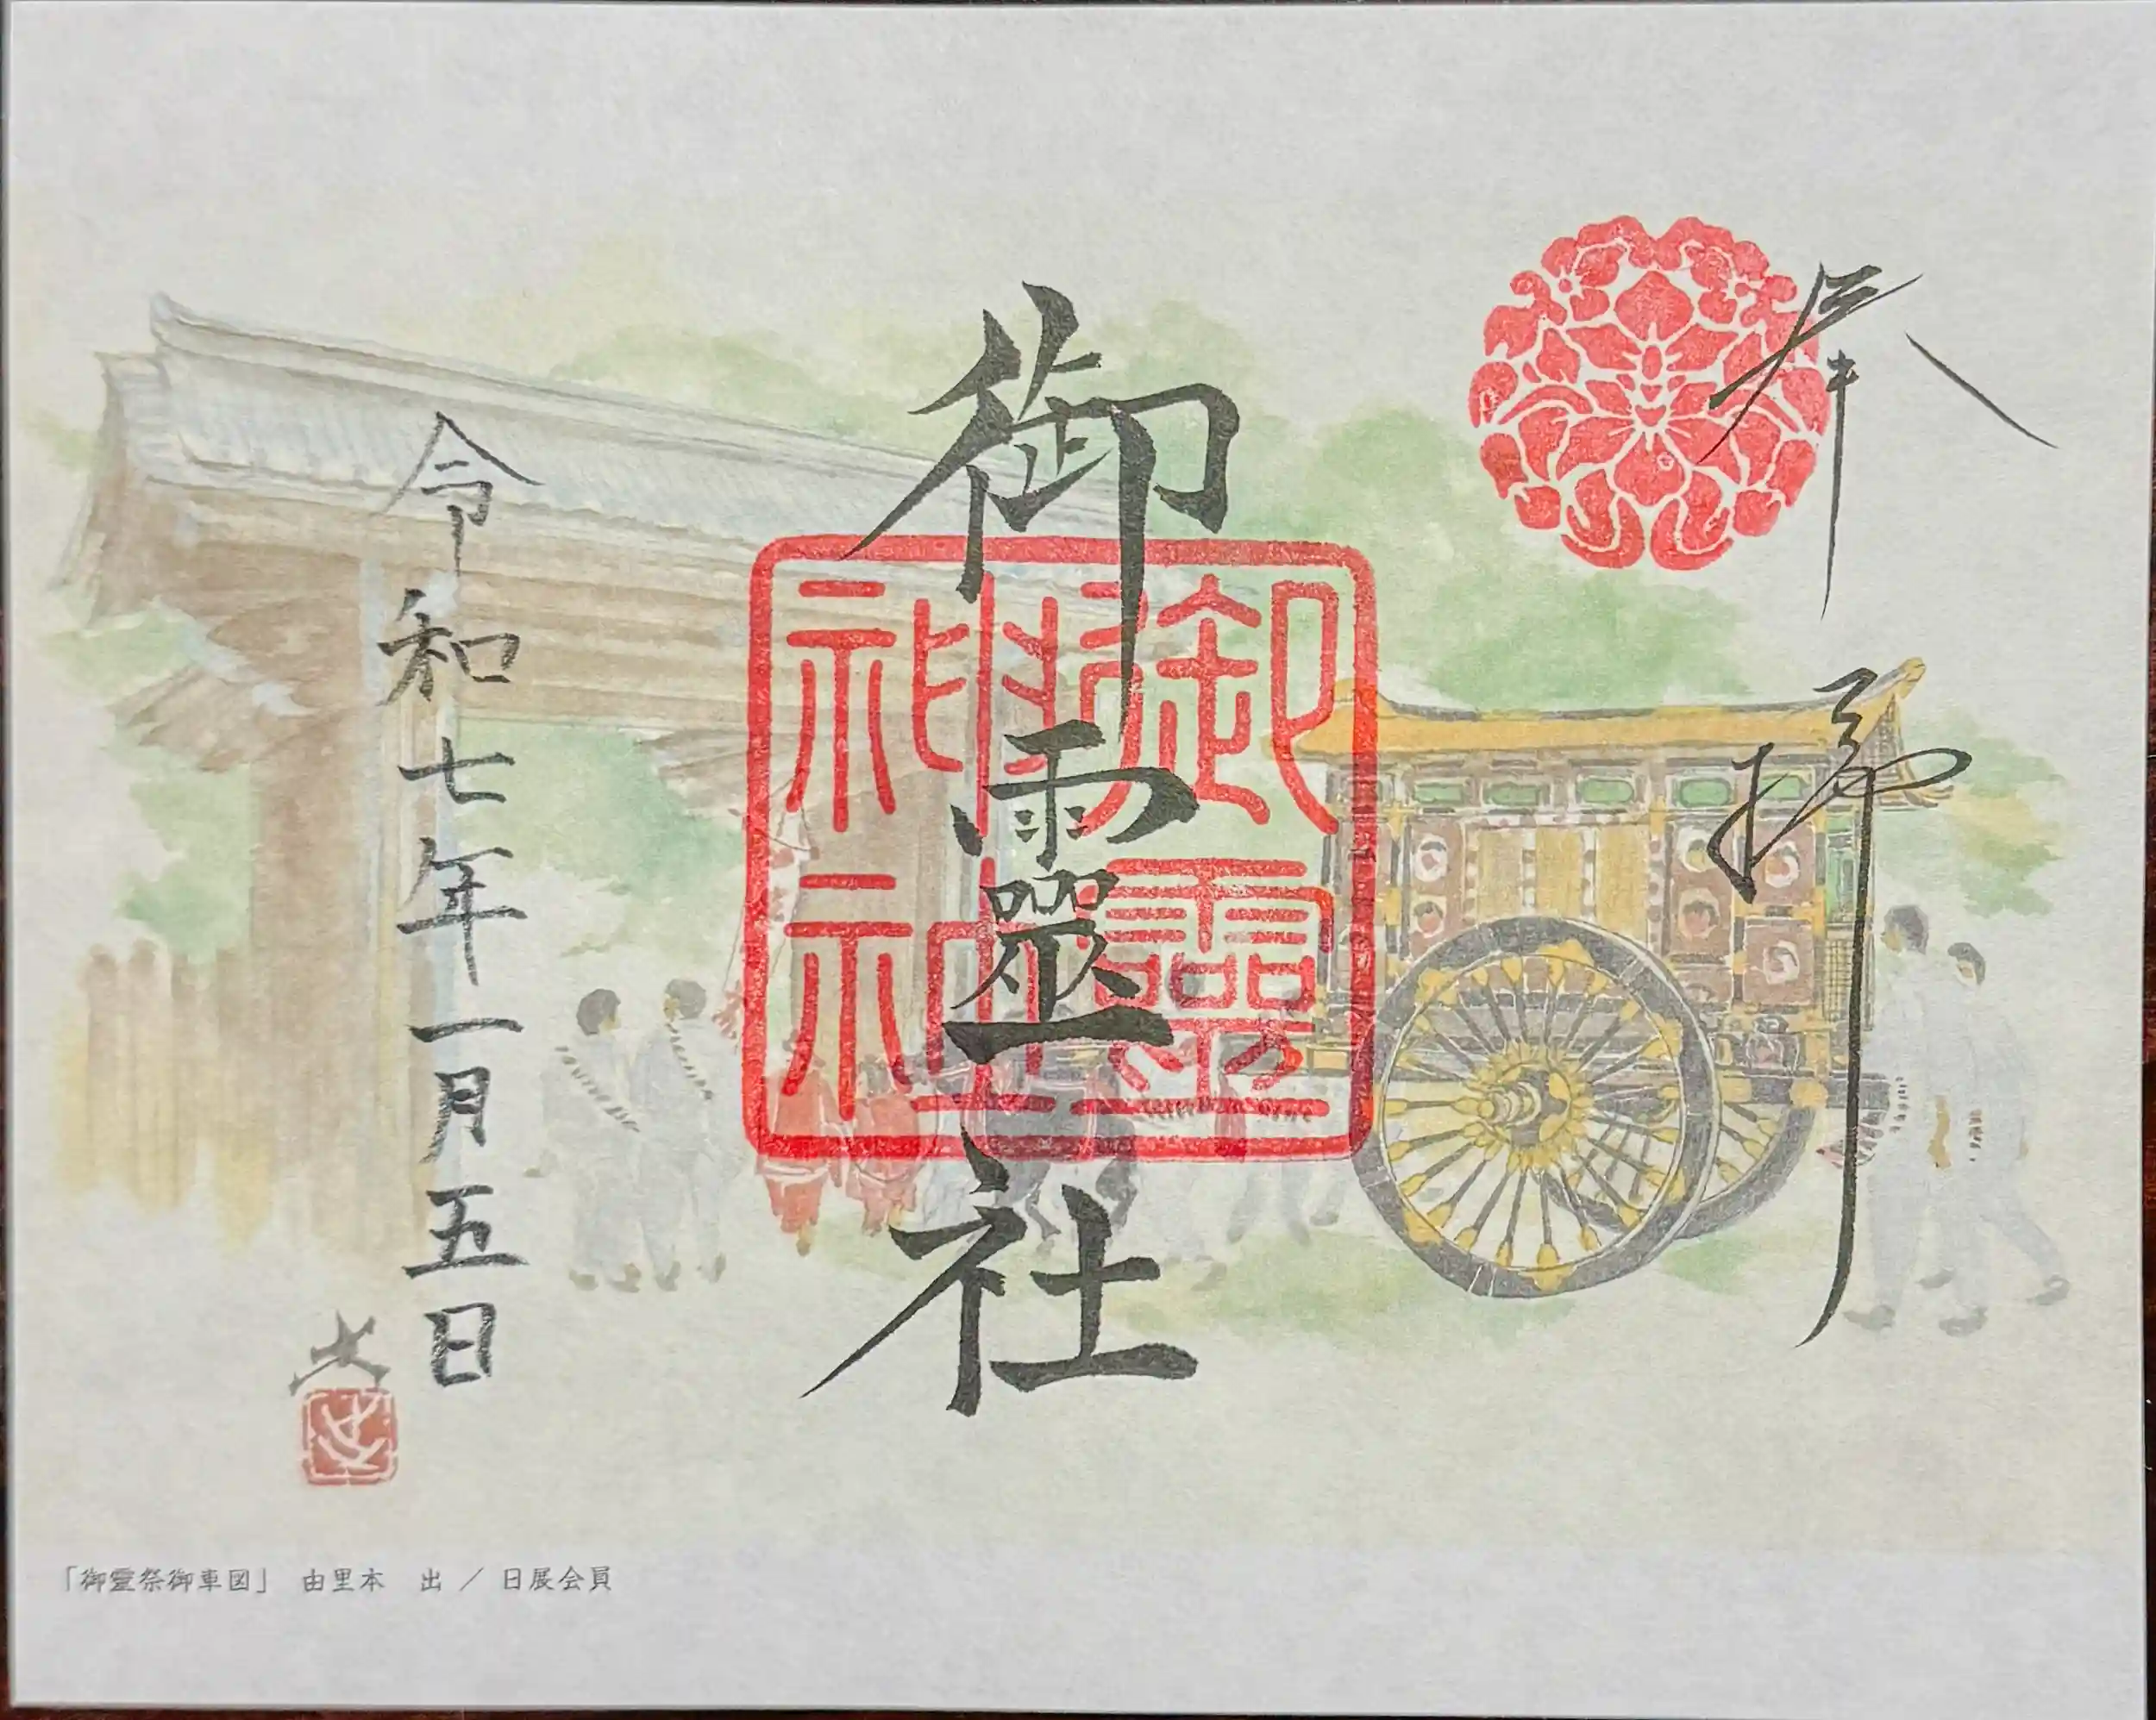 奉拝
御靈社
御靈
神社
令和七年一月五日
「御霊祭御車図」　由里本　出 ／ 日展会員